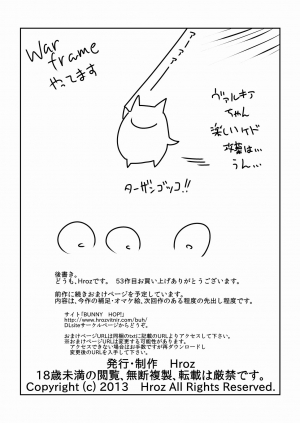 War
frame
やってます
アーアアー
ヴァルキア
ちゃん
楽しいケド
攻撃は…
うん…
ターザンゴッコ!!
後書き。
どうも、Hrozです。 53作目お買い上げありがとうございます。
前作に続きおまけページを予定しています。
内容は、今作の補足・オマケ絵、次回作のある程度の先出し程度です。
サイト「BUNNY HOP!」
http://www.hrozvitnir.com/buh/
DLsiteサークルページからどうぞ。
おまけページURLは同梱のtxtに記載のURLよりアクセスして下さい。
※おまけページURLは変更する可能性があります。
アクセスできない場合はお手数ですが再ダウンロードし
変更後のURLを入手して下さい。
発行・制作 Hroz
18歳未満の閲覧、無断複製、転載は厳禁です。
Copyright (c) 2013 Hroz All Rights Reserved.